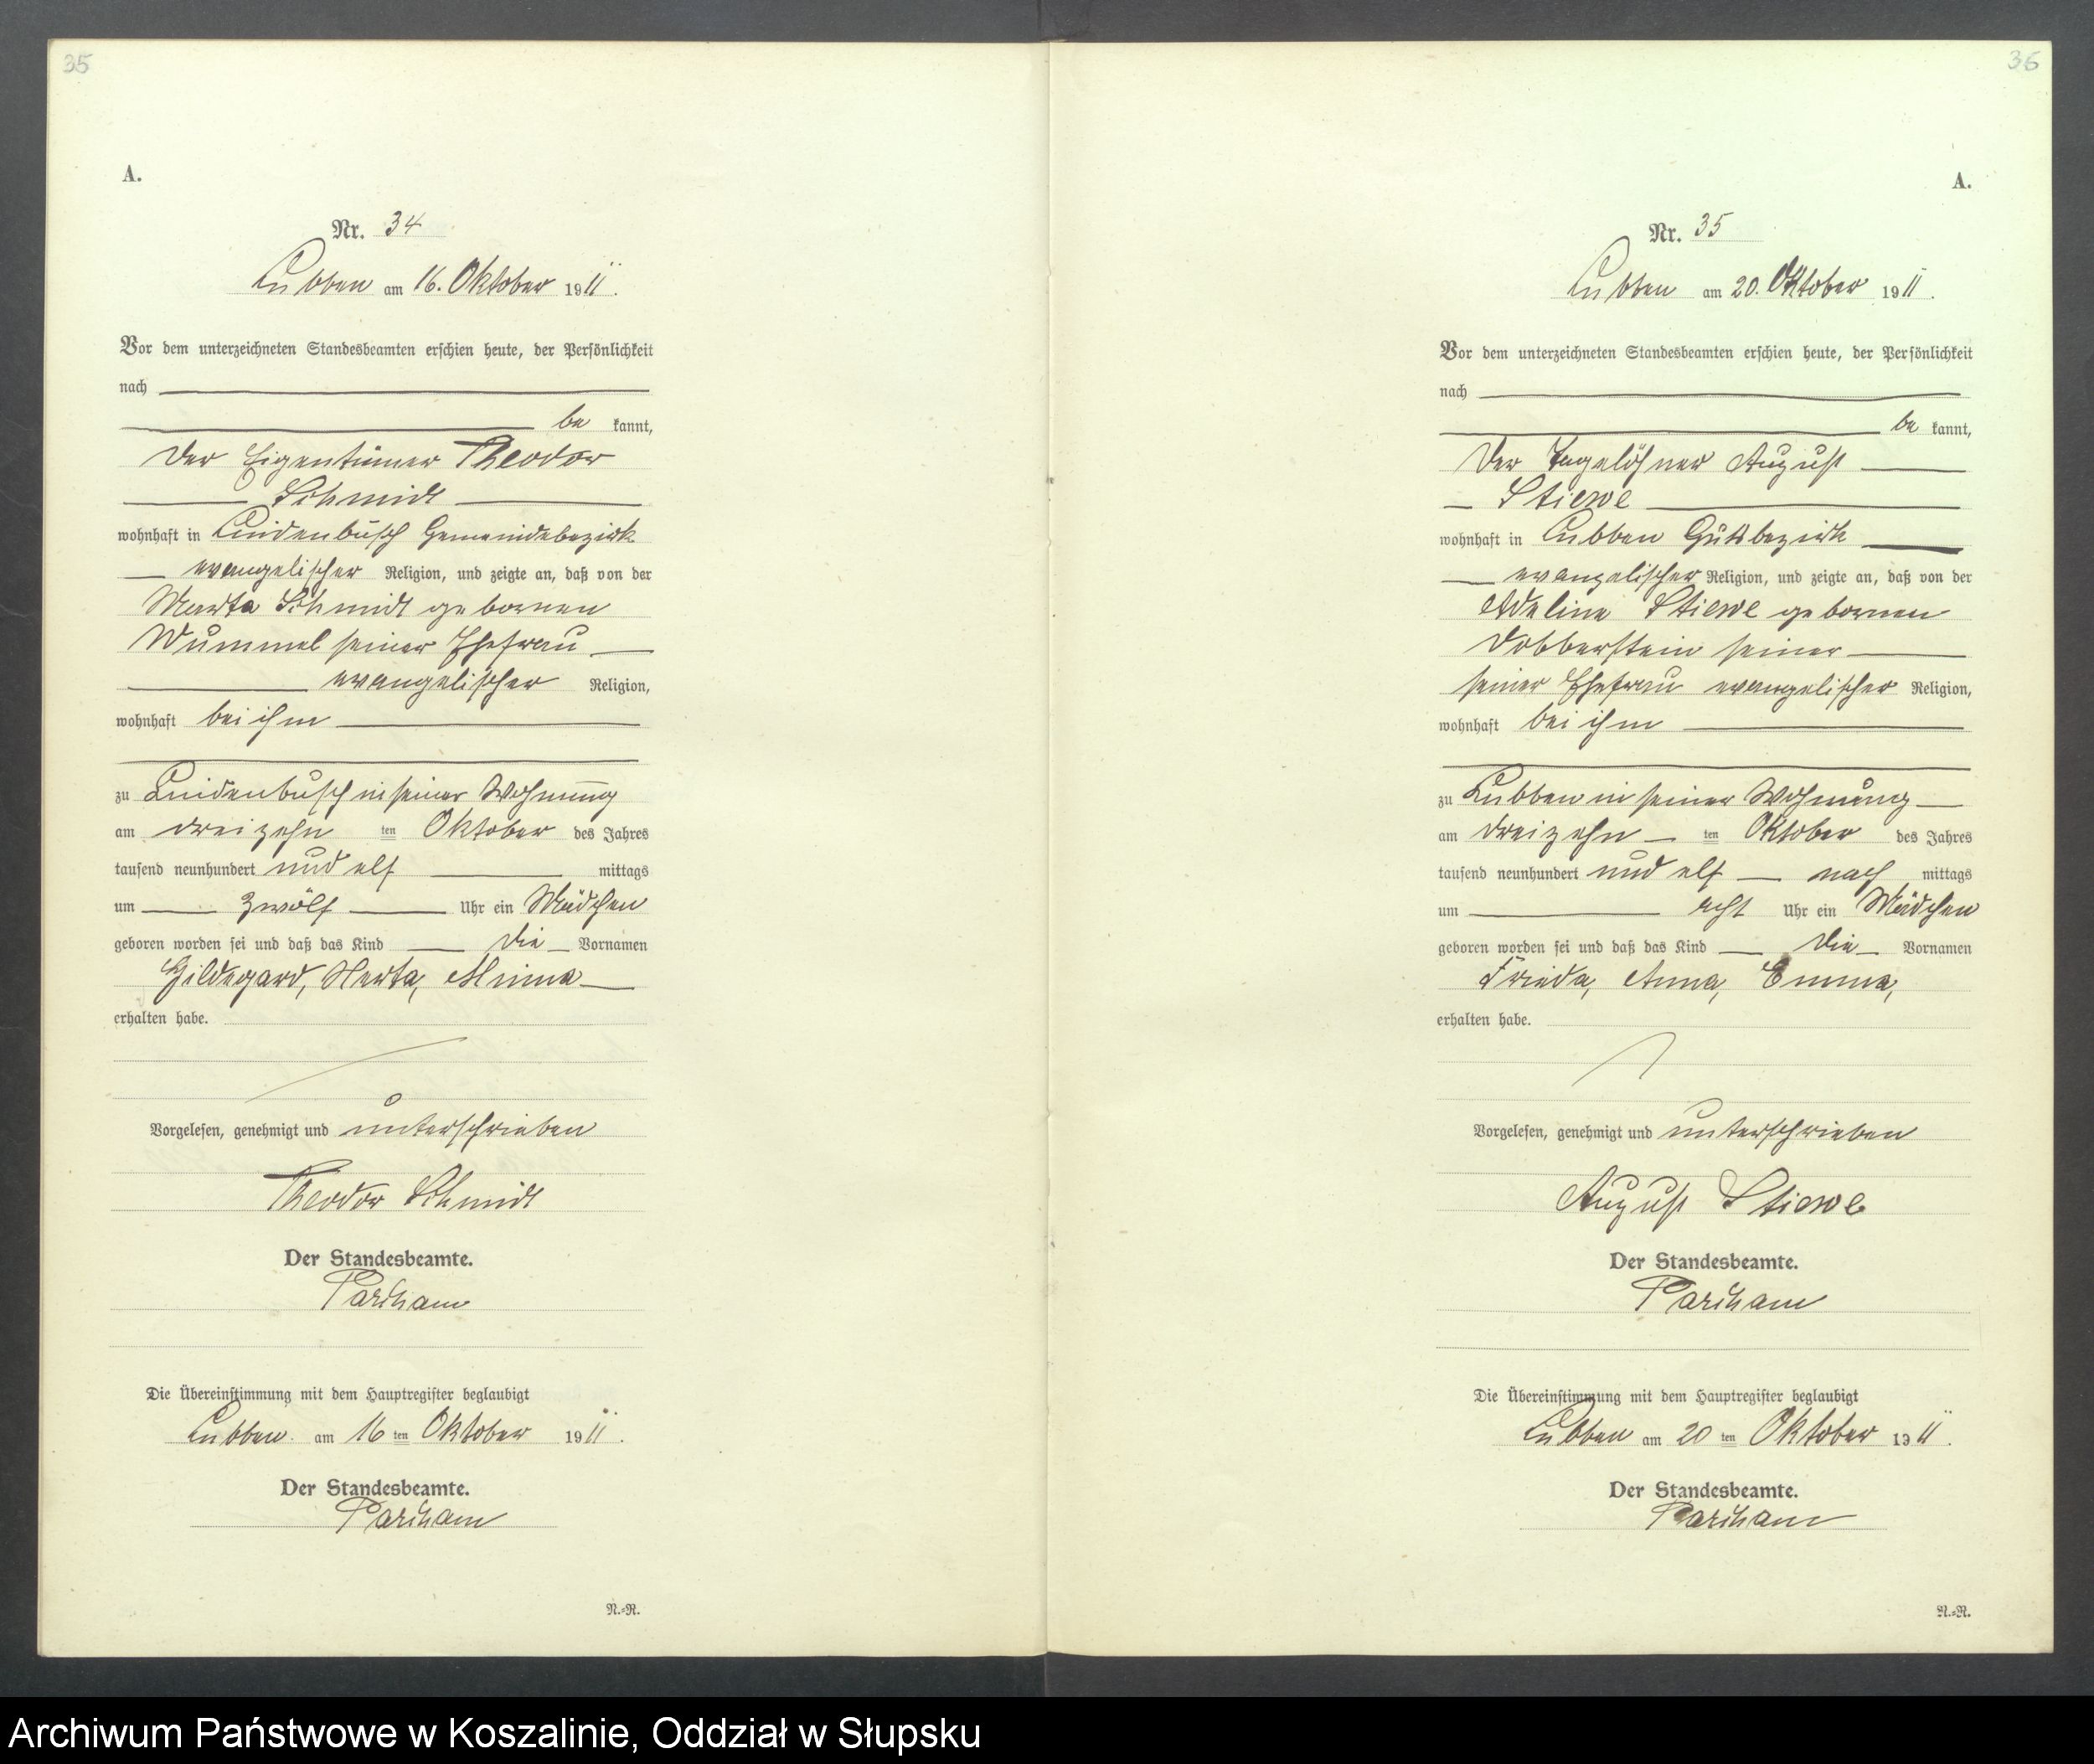 35
A.
Nr. 34
Lubben am 16. Oktober 1911.
Vor dem unterzeichneten Standesbeamten erschien heute, der Persönlichkeit
nach
be kannt,
der Eigentümer Theodor
Schmidt
wohnhaft in Lindenbusch Gemeindebezirk
evangelischer Religion, und zeigte an, daß von der
Marta Schmidt gebornen
Wummel seiner Ehefrau
evangelischer Religion,
wohnhaft bei ihm
zu Lindenbusch in seiner Wohnung
am dreizehn ten Oktober des Jahres
tausend neunhundert und elf mittags
um zwölf Uhr ein Mädchen
geboren worden sei und daß das Kind die Vornamen
Hildegard, Herta, Minna
erhalten habe.
Vorgelesen, genehmigt und unterschrieben
Theodor Schmidt
Der Standesbeamte.
Die Übereinstimmung mit dem Hauptregister beglaubigt
Lubben am 16 ten Oktober 1911.
Der Standesbeamte.
N.-R.
36
A.
Nr. 35
Lubben am 20. Oktober 1911.
Vor dem unterzeichneten Standesbeamten erschien heute, der Persönlichkeit
nach
be kannt,
der Tagelöhner August
Stiewe
wohnhaft in Lubben Gutsbezirk
evangelischer Religion, und zeigte an, daß von der
Adeline Stiewe gebornen
Dobberstein seiner
seiner Ehefrau evangelischer Religion,
wohnhaft bei ihm
zu Lubben in seiner Wohnung
am dreizehn ten Oktober des Jahres
tausend neunhundert und elf nach mittags
um acht Uhr ein Mädchen
geboren worden sei und daß das Kind die Vornamen
Frieda, Anna, Emma,
erhalten habe.
Vorgelesen, genehmigt und unterschrieben
August Stiewe
Der Standesbeamte.
Die Übereinstimmung mit dem Hauptregister beglaubigt
Lubben am 20 ten Oktober 1911.
Der Standesbeamte.
N.-R.
Archiwum Państwowe w Koszalinie, Oddział w Słupsku